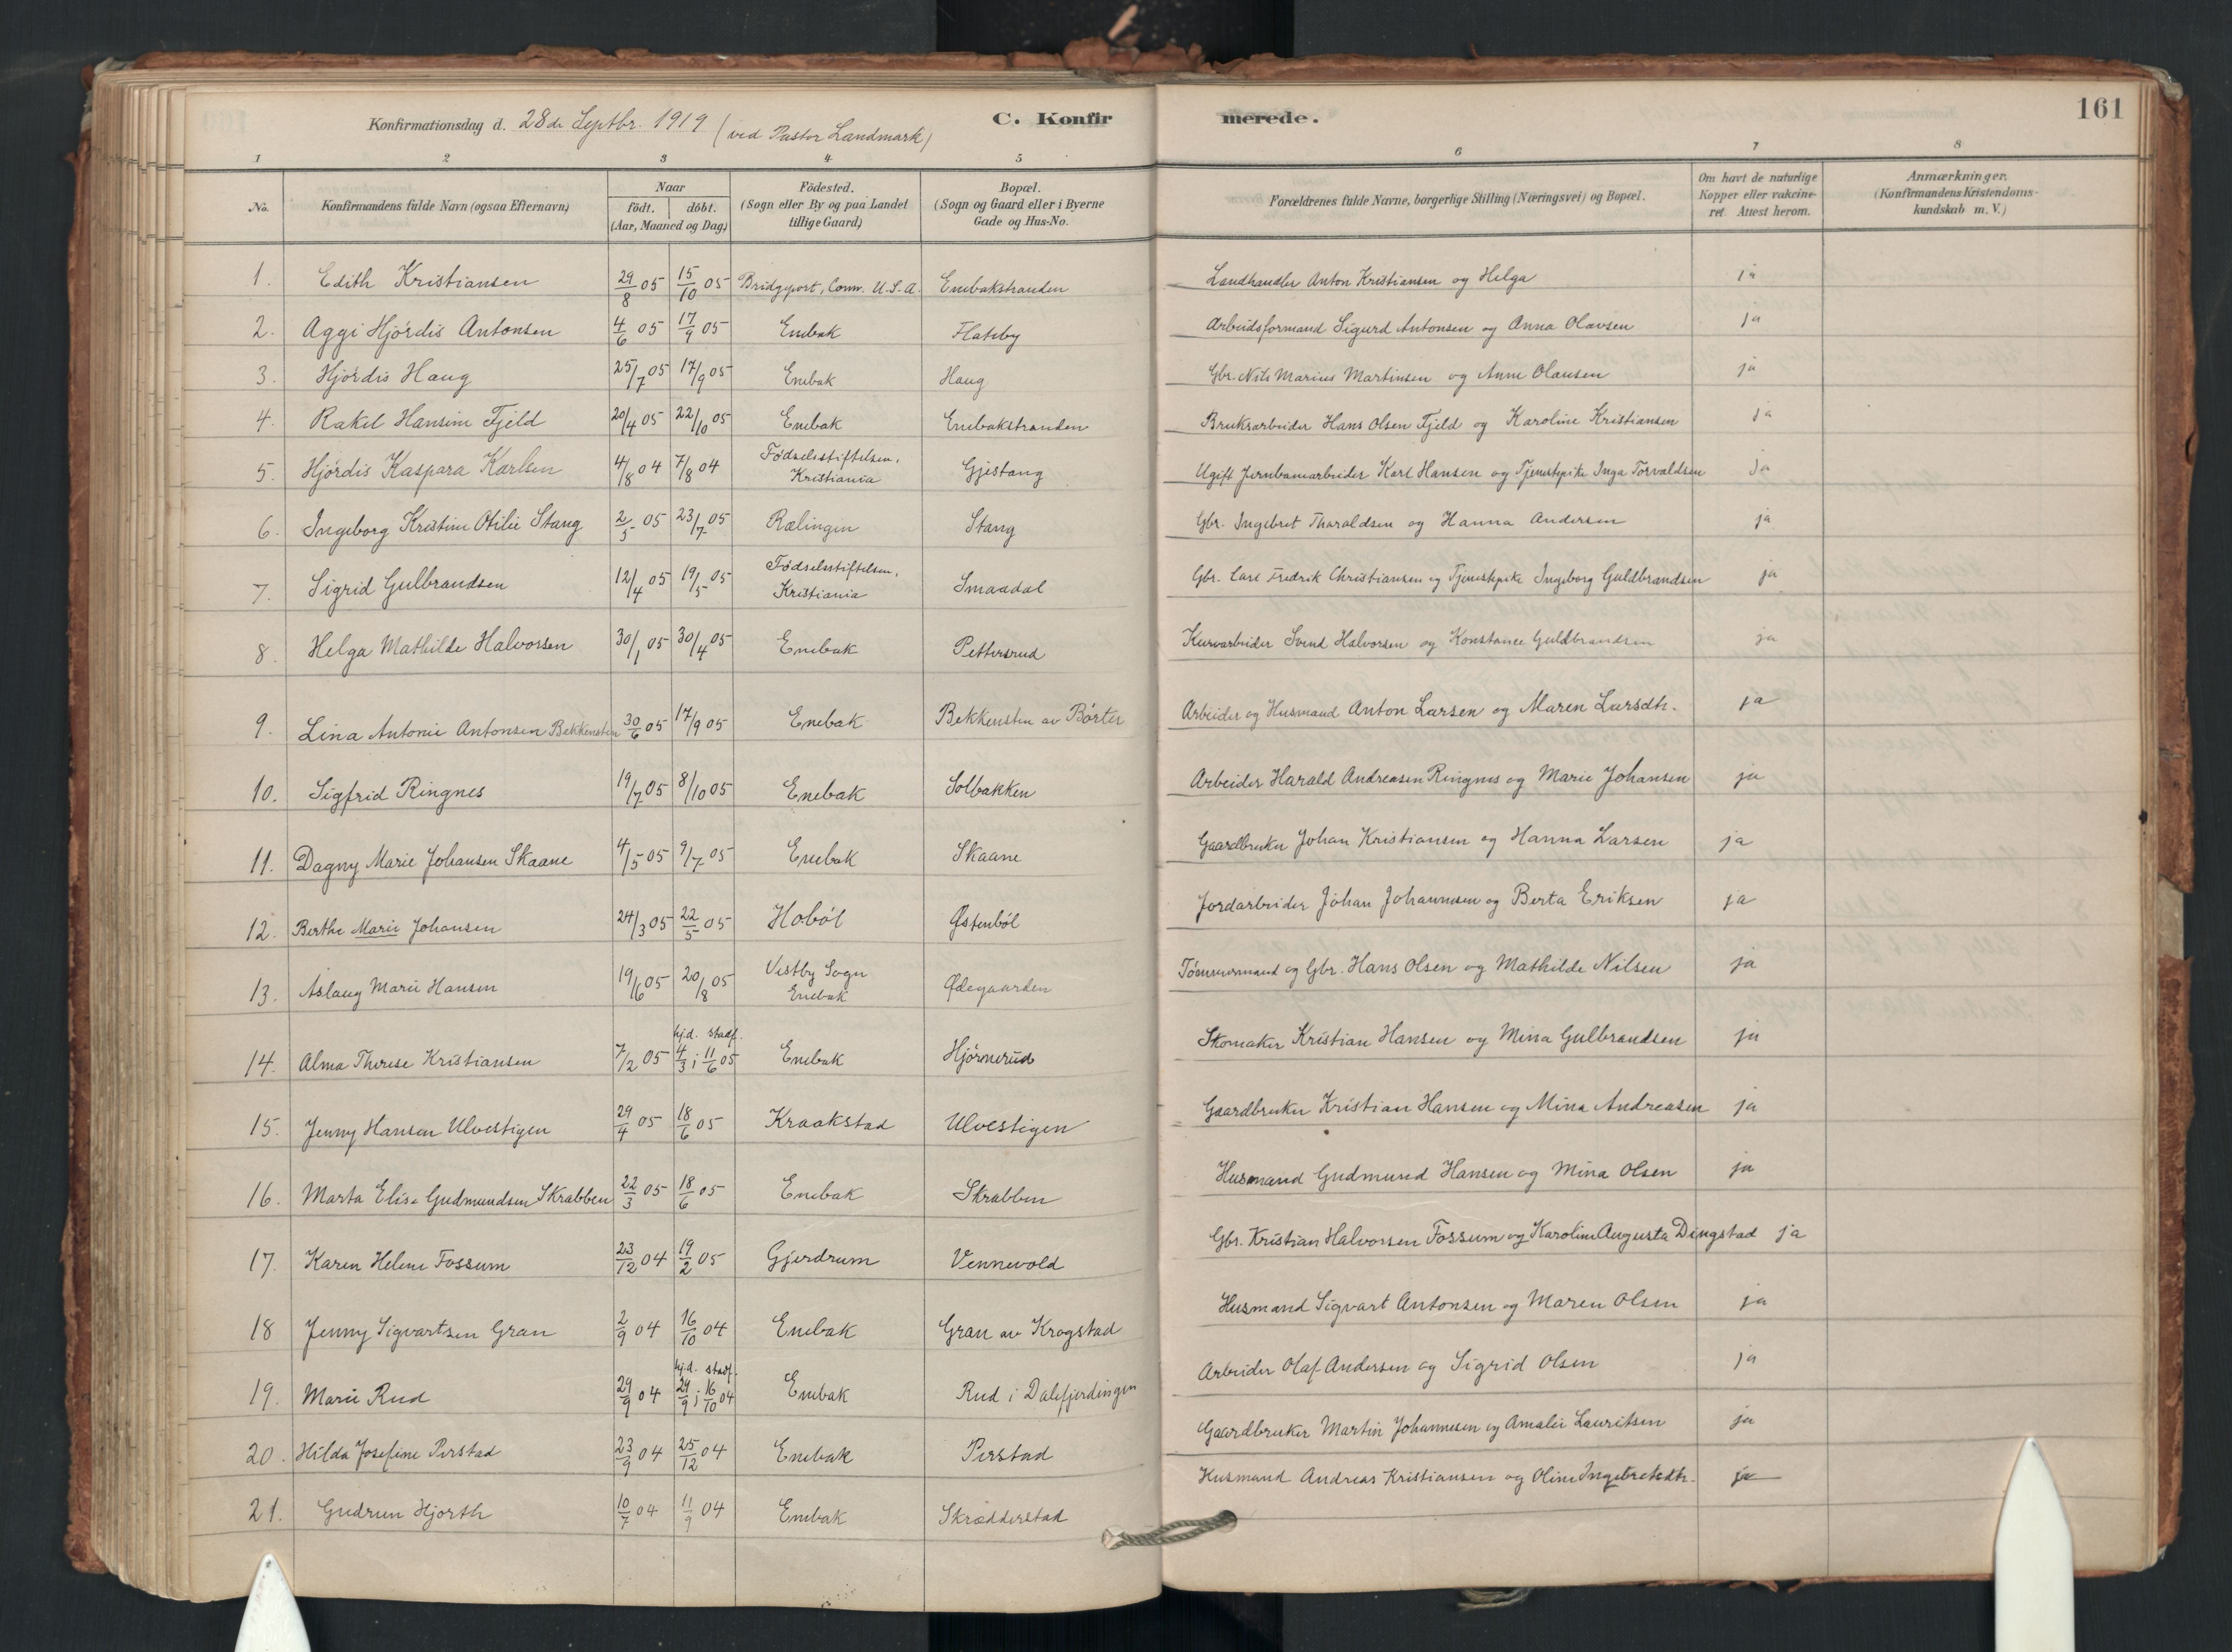 Konfirmationsdag d. 28de Septbr. 1919 (ved Pastor Landmark)
C. Konfir
merede.
161
1 2 3 4 5 6 7 8
No.
Konfirmandens fulde Navn (ogsaa Efternavn)
Naar
födt. döbt.
(Aar, Maaned og Dag)
Födested.
(Sogn eller By og paa Landet
tillige Gaard)
Bopæl.
(Sogn og Gaard eller i Byerne
Gade og Hus-No.
Forældrenes fulde Navne, borgerlige Stilling (Næringsvei) og Bopæl.
Om havt de naturlige
Kopper eller vakcine-
ret. Attest herom.
Anmærkninger.
(Konfirmandens Kristendoms-
kundskab m. V.)
1. Edith Kristiansen 29/8 05 15/10 05 Bridgeport, Conn. U.S.A. Enebakstranden Landhandler Anton Kristiansen og Helga ja
2. Aggi Hjørdis Antonsen 4/6 05 17/9 05 Enebak Flateby Arbeidsformand Sigurd Antonsen og Anna Olavsen ja
3. Hjørdis Haug 25/7 05 17/9 05 Enebak Haug Gbr. Nils Marius Martinsen og Anne Olausen ja
4. Rakel Hansine Fjeld 20/4 05 22/10 05 Enebak Enebakstranden Bruksarbeider Hans Olsen Fjeld og Karoline Kristiansen ja
5. Hjørdis Kaspara Karlsen 4/8 04 7/8 04 Fødselsstiftelsen, Kristiania Gjestang Ugift Jernbanearbeider Karl Hansen og Tjenestepike Inga Torvaldsen ja
6. Ingeborg Kristine Otilie Stang 2/5 05 23/7 05 Rælingen Stang Gbr. Ingebret Tharaldsen og Hanna Andersen ja
7. Sigrid Gulbrandsen 12/4 05 19/5 05 Fødselsstiftelsen, Kristiania Smaadal Gbr. Carl Fredrik Christiansen og Tjenestepike Ingeborg Guldbrandsen ja
8. Helga Mathilde Halvorsen 30/1 05 30/4 05 Enebak Pettersrud Kurvarbeider Svend Halvorsen og Konstance Guldbrandsen ja
9. Lina Antonie Antonsen Bekkensten 30/6 05 17/9 05 Enebak Bekkensten av Børter Arbeider og Husmand Anton Larsen og Maren Larsdtr. ja
10. Sigfrid Ringnes 19/7 05 8/10 05 Enebak Solbakken Arbeider Harald Andreasen Ringnes og Marie Johansen ja
11. Dagny Marie Johansen Skaane 4/5 05 9/7 05 Enebak Skaane Gaardbruker Johan Kristiansen og Hanna Larsen ja
12. Berthe Marie Johansen 24/3 05 22/5 05 Hobøl Østenbøl Jordarbeider Johan Johannesen og Berta Eriksen ja
13. Aslaug Marie Hansen 19/6 05 20/8 05 Vestby Sogn Enebak Ødegaarden Tømmermand og Gbr. Hans Olsen og Mathilde Nilsen ja
14. Alma Therese Kristiansen 7/2 05 hj.d. 4/3 i stadf. 11/6 05 Enebak Hjørnerud Skomaker Kristian Hansen og Mina Gulbrandsen ja
15. Jenny Hansen Ulvestigen 29/4 05 18/6 05 Kraakstad Ulvestigen Gaardbruker Kristian Hansen og Mina Andreasen ja
16. Marta Elise Gudmundsen Skrabben 22/3 05 18/6 05 Enebak Skrabben Husmand Gudmund Hansen og Mina Olsen ja
17. Karen Helene Fossum 23/12 04 19/2 05 Gjerdrum Vennevold Gbr. Kristian Halvorsen Fossum og Karoline Augusta Dingstad ja
18 Jenny Sigvartsen Gran 2/9 04 16/10 04 Enebak Gran av Krogstad Husmand Sigvart Antonsen og Maren Olsen ja
19. Marie Rud 29/9 04 hj.d. 29/9 i stadf. 16/10 04 Enebak Rud i Dalefjerdingen Arbeider Olaf Andersen og Sigrid Olsen ja
20. Hilda Josefine Perstad 23/9 04 25/12 04 Enebak Perstad Gaardbruker Martin Johannesen og Amalie Lauritsen ja
21. Gudrun Hjorth 10/7 04 11/9 04 Enebak Skrædderstad Husmand Andreas Kristiansen og Oline Ingebretsdtr. ja